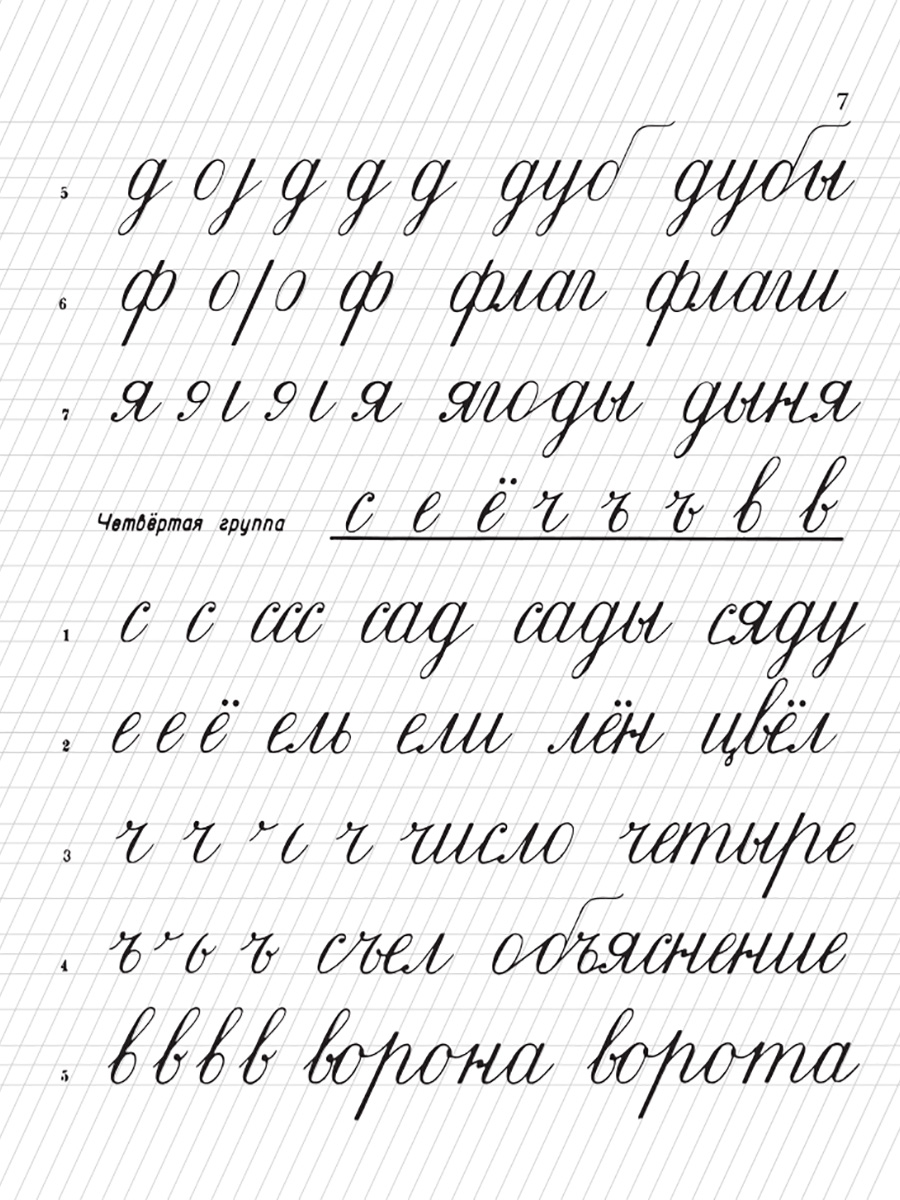 7
5 д о ȷ д д д дуб дубы
6 ф о ı о ф флаг флаги
7 я э ı э ı я ягоды дыня
Четвёртая группа с е ё ч ъ ъ в в
1 с с ссс сад сады сяду
2 е е ё ель ели лён цвёл
3 ч ч ˇ ı ч число четыре
4 ъ ˇ ь ъ съел объяснение
5 в в в в ворона ворота